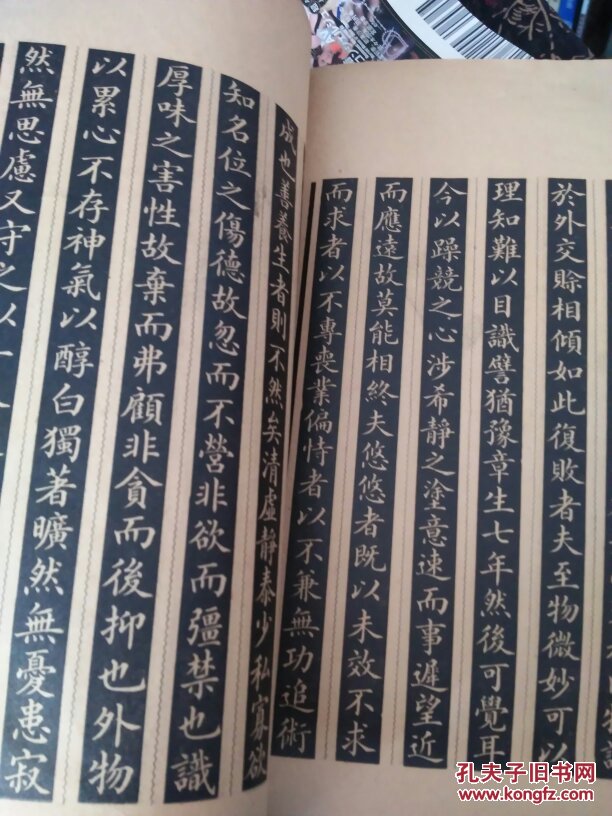 於外交賒相傾如此復敗者夫至物微妙可以
理知難以目識譬猶豫章生七年然後可覺耳
今以躁競之心涉希靜之塗意速而事遲望近
而應遠故莫能相終夫悠悠者既以未效不求
而求者以不專喪業偏恃者以不兼無功追術
成也善養生者則不然矣清虛靜泰少私寡欲
知名位之傷德故忽而不營非欲而彊禁也識
厚味之害性故棄而弗顧非貪而後抑也外物
以累心不存神氣以醇白獨著曠然無憂患寂
然無思慮又守之以一
孔夫子旧书网
www.kongfz.com